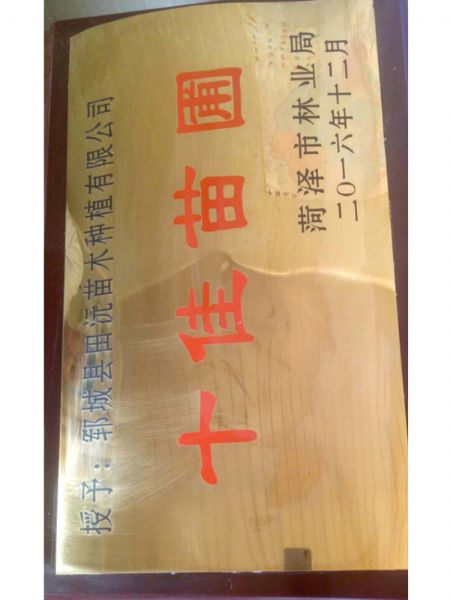 授予：郓城县田沅苗木种植有限公司
十佳苗圃
菏泽市林业局
二〇一六年十二月